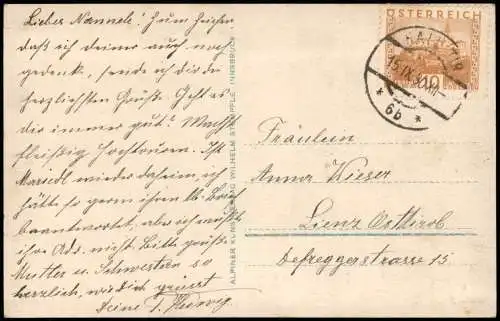 Lieber Nannele! Zum Zeichen
daß ich deiner auch noch
gedenke, sende ich dir die
herzlichsten Grüße. Geht es
dir immer gut? Machst
fleißig Hochtouren. Ist
Mariedl wieder daheim, ich
hätte so gern ihren lb. Brief
beantwortet, aber ich weiß
ihre Adr. nicht. Bitte grüße
Mutter u. Schwestern so
herzlich, wie dich grüsst
Deine T. Hedwig
ALPINER KUNSTVERLAG WILHELM STEMPFLE, INNSBRUCK
ÖSTERREICH
15.IX.30
10
* 6b *
Fräulein
Anna Kieser
Lienz Osttirol
Defreggerstrasse 15